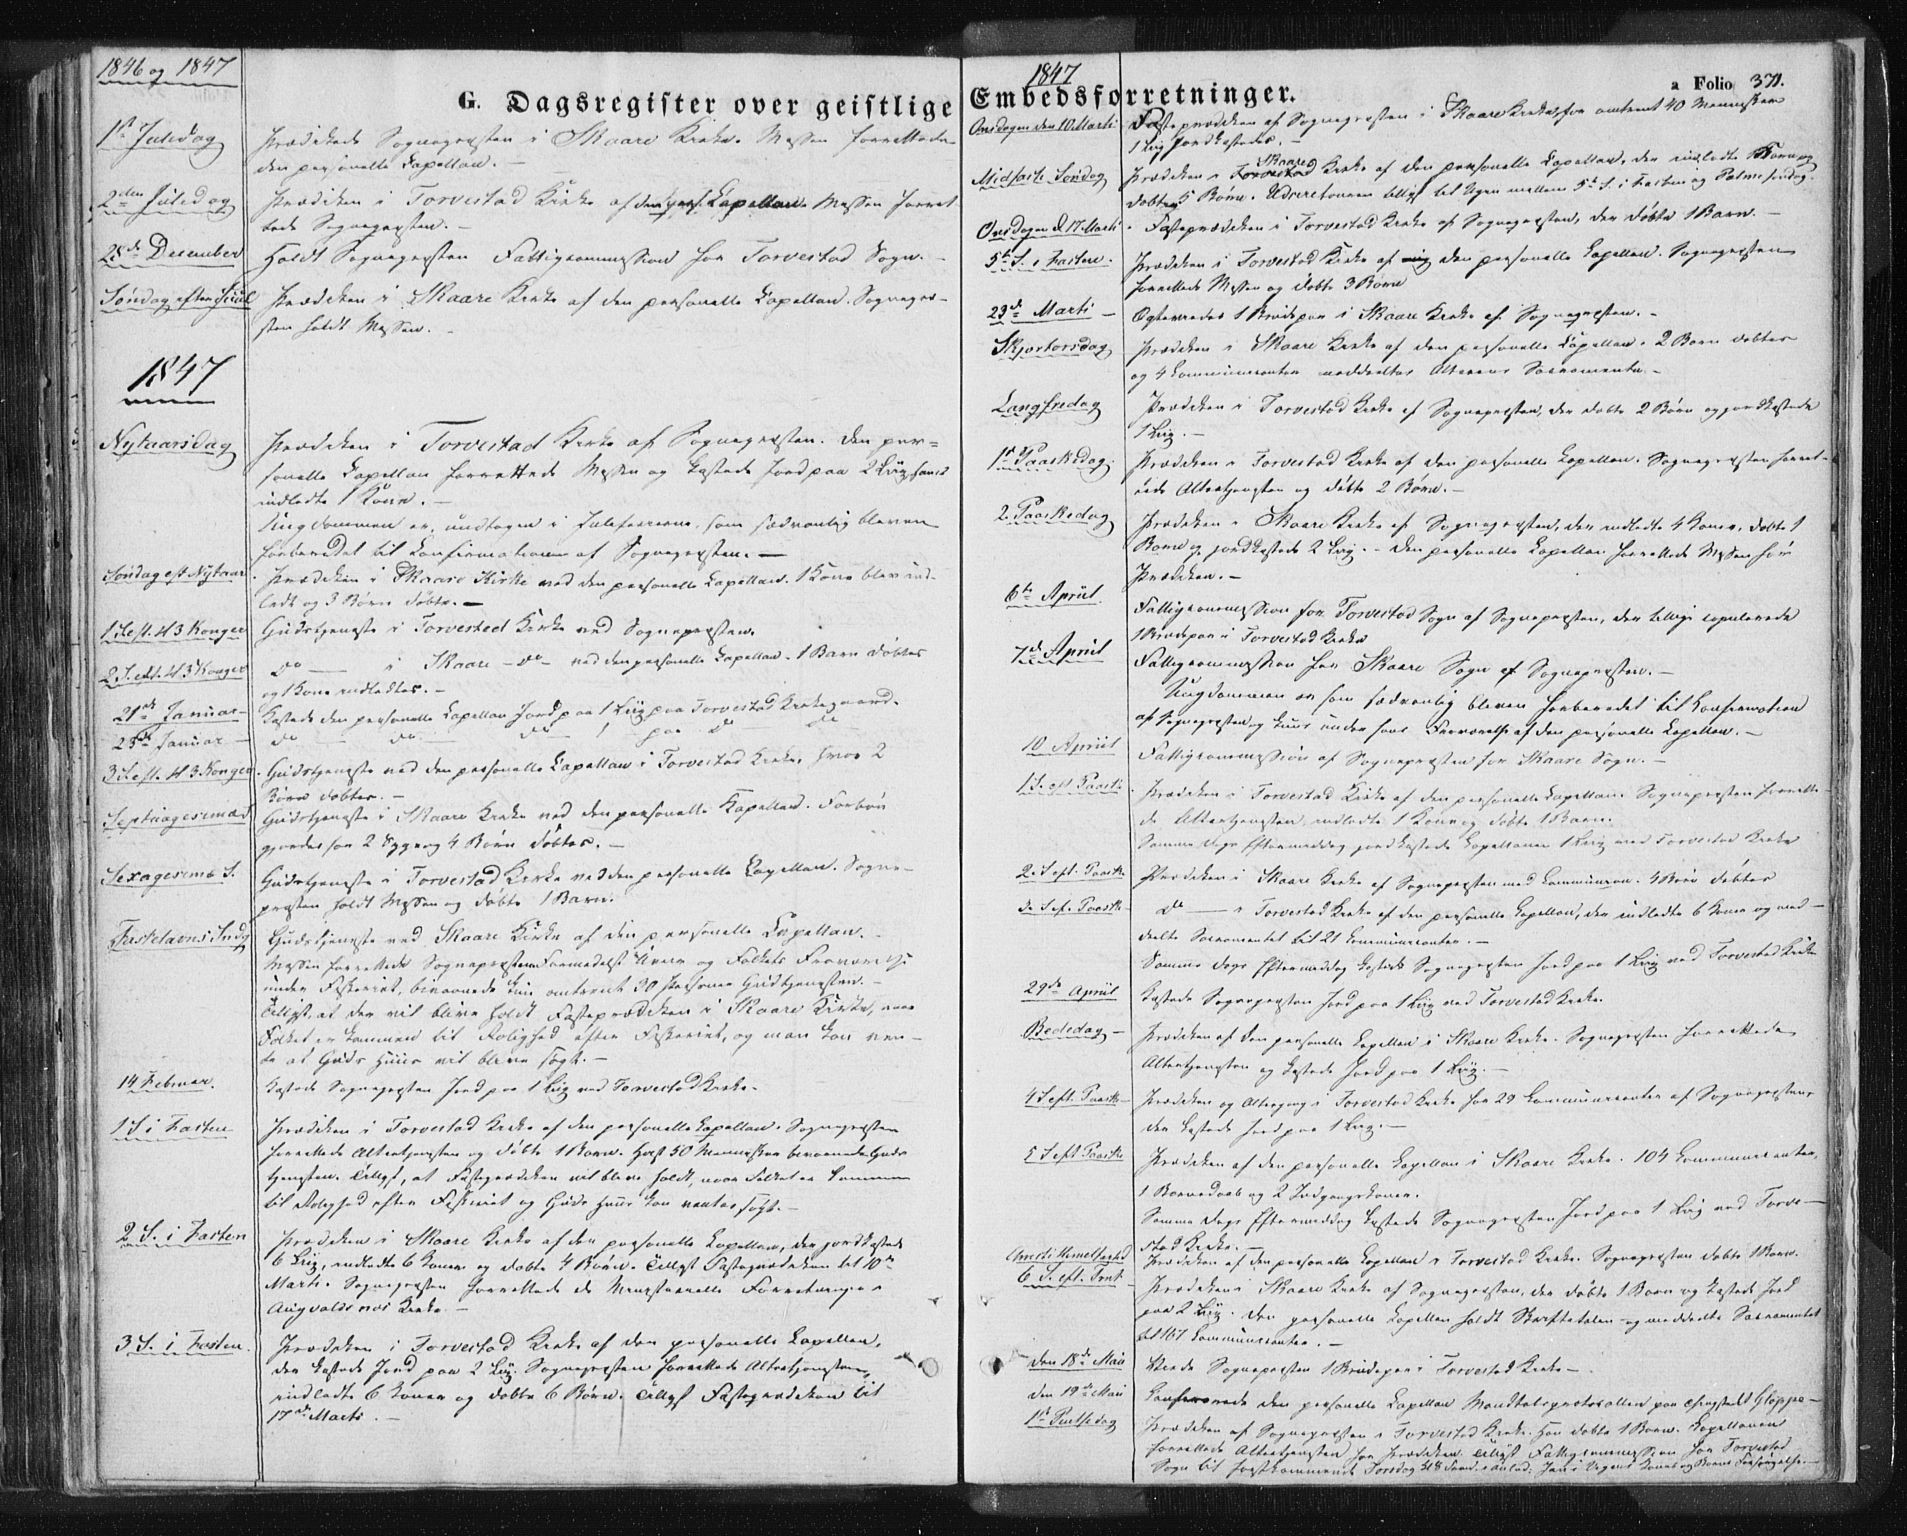 1846 og 1847
G. Dagsregister over geistlige
1ste Juledag Prædikede Sognepræsten i Skaare Kirke. Messen forrettede
den personelle Capellan. –
2den Juledag Prædiken i Torvestad Kirke af den pers. Capellan. Messen forret
tede Sognepræsten. –
28de December Holdt Sognepræsten Fattigcommission for Torvestad Sogn. –
Søndag efter Juul Prædiken i Skaare Kirke af den personelle Capellan. Sognepræ-
sten holdt Messen. –
1847
Nytaarsdag Prædiken i Torvestad Kirke af Sognepræsten. Den per-
sonelle Capellan forrettede Messen og kastede Jord paa 2 Liig samt
indledte 1 Kone. –
Ungdommen er, undtagen i Juleferierne, som sædvanlig bleven
forberedet til Confirmationen af Sognepræsten. –
Søndag eft Nytaar Prædiken i Skaare Kirke ved den personelle Capellan. 1 Kone blev ind-
ledt og 3 Børn døbte. –
1 S. eft. H 3 Konger Gudstjeneste i Torvestad Kirke ved Sognepræsten.
2 S. eft. H 3 Konger do – i Skaare – do – ved den personelle Capellan. 1 Barn døbtes
og 1 Kone indledtes. –
21de Januar Kastede den personelle Capellan Jord paa 1 Liig paa Torvestad Kirkegaard.
25de Januar – do do do 1 paa do do
3 S. eft. H 3 Konger Gudstjeneste ved den personelle Capellan i Torvestad Kirke, hvor 2
Børn døbtes. –
Septuagesima S. Gudstjeneste i Skaare Kirke ved den personelle Kapellan. Forbøn
gjordes for 2 Syge og 4 Børn døbtes. –
Sexagesima S. Gudstjeneste i Torvestad Kirke ved den personelle Capellan. Sogne-
præsten holdt Messen og døbte 1 Barn.
Fastelavns Sndg Gudstjeneste ved Skaare Kirke af den personelle Capellan. –
Messen forrettede Sognepræsten. Formedelst Veir og Folkets Fraværelse
under Fiskeriet, bivaanede kun omtrent 30 Personer Gudstjenesten. –
Tillyst, at der vil blive holdt Fasteprædiken i Skaare Kirke, naar
Folket er kommen til Rolighed efter Fiskeriet, og man kan ven-
te at Guds Huus vil blive søgt. –
14 Februar. Kastede Sognepræsten Jord paa 1 Liig ved Torvestad Kirke.
1 S i Fasten Prædiken i Torvestad Kirke af den personelle Capellan. Sognepræsten
forrettede Altertjenesten og døbte 1 Barn. Høist 50 Mennesker bivaanede Guds
tjenesten. Tillyst, at Fasteprædiken vil blive holdt, naar Folket er kommen
til Rolighed efter Fiskeriet og Guds Huus kan ventes søgt. –
2 S. i Fasten Prædiken i Skaare Kirke af den personelle Capellan, der jordkastede
6 Liig, indledte 6 Koner og døbte 4 Børn. Tillyst Fasteprædiken til 10de
Marti. Sognepræsten forrettede de Ministerielle Forretninger i
Augvaldsnæs Kirke. –
3 S. i Fasten. Prædiken i Torvestad Kirke af den personelle Capellan,
der kastede Jord paa 2 Liig. Sognepræsten forrettede Altertjenesten,
indledte 6 Koner og døbte 6 Børn. Tillyst Fasteprædiken til
17de Marti. –
1847
Embedsforretninger.
a Folio 371.
Onsdagen den 10 Marti Fasteprædiken af Sognepræsten i Skaare Kirke for omtrent 40 Mennesker
1 Liig jordkastedes. –
Midfaste Søndag Prædiken i Skaare Torvestad Kirke af den personelle Capellan, der indledte Kone og
døbte 5 Børn. Udvisetouren tillyst til Ugen mellem 5te S. i Fasten og Palmesøndag.
Onsdagen d 17 Marti Fasteprædiken i Torvestad Kirke af Sognepræsten, der døbte 1 Barn. –
5te S. i Fasten. Prædiken i Torvestad Kirke af den personelle Capellan. Sognepræsten
forrettede Messen og døbte 3 Børn
23de Marti – Egteviedes 1 Brudepar i Skaare Kirke af Sognepræsten. –
Skjærtorsdag Prædiken i Skaare Kirke af den personelle Capellan. 2 Børn døbtes
og 4 Communicanter meddeeltes Alterens Sacramente. –
Langfredag Prædiken i Torvestad Kirke af Sognepræsten, der døbte 2 Børn og jordkastede
1 Liig. –
1ste Paaskedag. Prædiken i Torvestad Kirke af den personelle Capellan. Sognepræsten forret-
tede Altertjenesten og døbte 2 Børn. –
2. Paaskedag Prædiken i Skaare Kirke af Sognepræsten, der indledte 4 Koner, døbte 1
Barn og jordkastede 2 Liig. – Den personelle Capellan forrettede Messen før
Prædiken. –
6te Apriil. Fattigcommission for Torvestad Sogn af Sognepræsten, der tillige copulerede
1 Brudepar i Torvestad Kirke
7de Apriil Fattigcommission for Skaare Sogn af Sognepræsten. –
Ungdommen er som sædvanlig bleven forberedet til Confirmation
af Sognepræsten og kuns under hans Fraværelse af den personelle Capellan. –
10 Apriil Fattigcommission af Sognepræsten for Skaare Sogn. –
1 S. eft Paaske Prædiken i Torvestad Kirke af den personelle Capellan. Sognepræsten forrette-
de Altertjenesten, indledte 1 Kone og døbte 1 Barn.
Samme Dags Eftermiddag jordkastede Capellanen 1 Liig ved Torvestad Kirke
2. S eft. Paaske Prædiken i Skaare Kirke af Sognepræsten med Communion. 4 Børn døbtes
3. S ef. Paask – do – i Torvestad Kirke af den personelle Capellan, der indledte 6 Koner og med-
deelte Sacramentet til 21 Communicanter. –
Samme Dags Eftermiddag kastede Sognepræsten Jord paa 1 Liig ved Torvestad Kirke
29de Apriil Kastede Sognepræsten Jord paa 1 Liig ved Torvestad Kirke.
Bededag – Prædiken af den personelle Capellan i Skaare Kirke. Sognepræsten forrettede
Altertjenesten og kastede Jord paa 1 Liig. –
4 S eft. Paask – Prædiken og Altergang i Torvestad Kirke for 29 Communicanter af Sognepræsten,
der kastede Jord paa 1 Liig. –
5 S eft Paaske Prædiken af den personelle Capellan i Skaare Kirke. 104 Communicanter,
1 Barnedaab og 2 Indgangskoner.
Samme Dags Eftermiddag kastede Sognepræsten Jord paa 1 Liig ved Torve-
stad Kirke. –
Christi Himmelfartsd Prædiken af den personelle Capellan i Torvestad Kirke. Sognepræsten døbte 1 Barn.
6 S. eft. Prædiken i Skaare Kirke af Sognepræsten, der døbte 1 Barn og kastede Jord
paa 2 Liig. Den personelle Capellan holdt Skriftetalen og meddeelte Sacramentet
til 167 Communicanter. –
Den 18de Maii Viede Sognepræsten 1 Brudepar i Torvestad Kirke –
den 19de Maii den personelle Capellan Mandtalsprotocollen paa
1ste Pintsedag Prædiken af Sognepræsten i Torvestad Kirke. Han døbte 1 Barn. Capellanen
forrettede Altertjenesten før Prædiken. Tillyst Fattigcommission for Torvestad
Sogn til førstkommende Torsdag